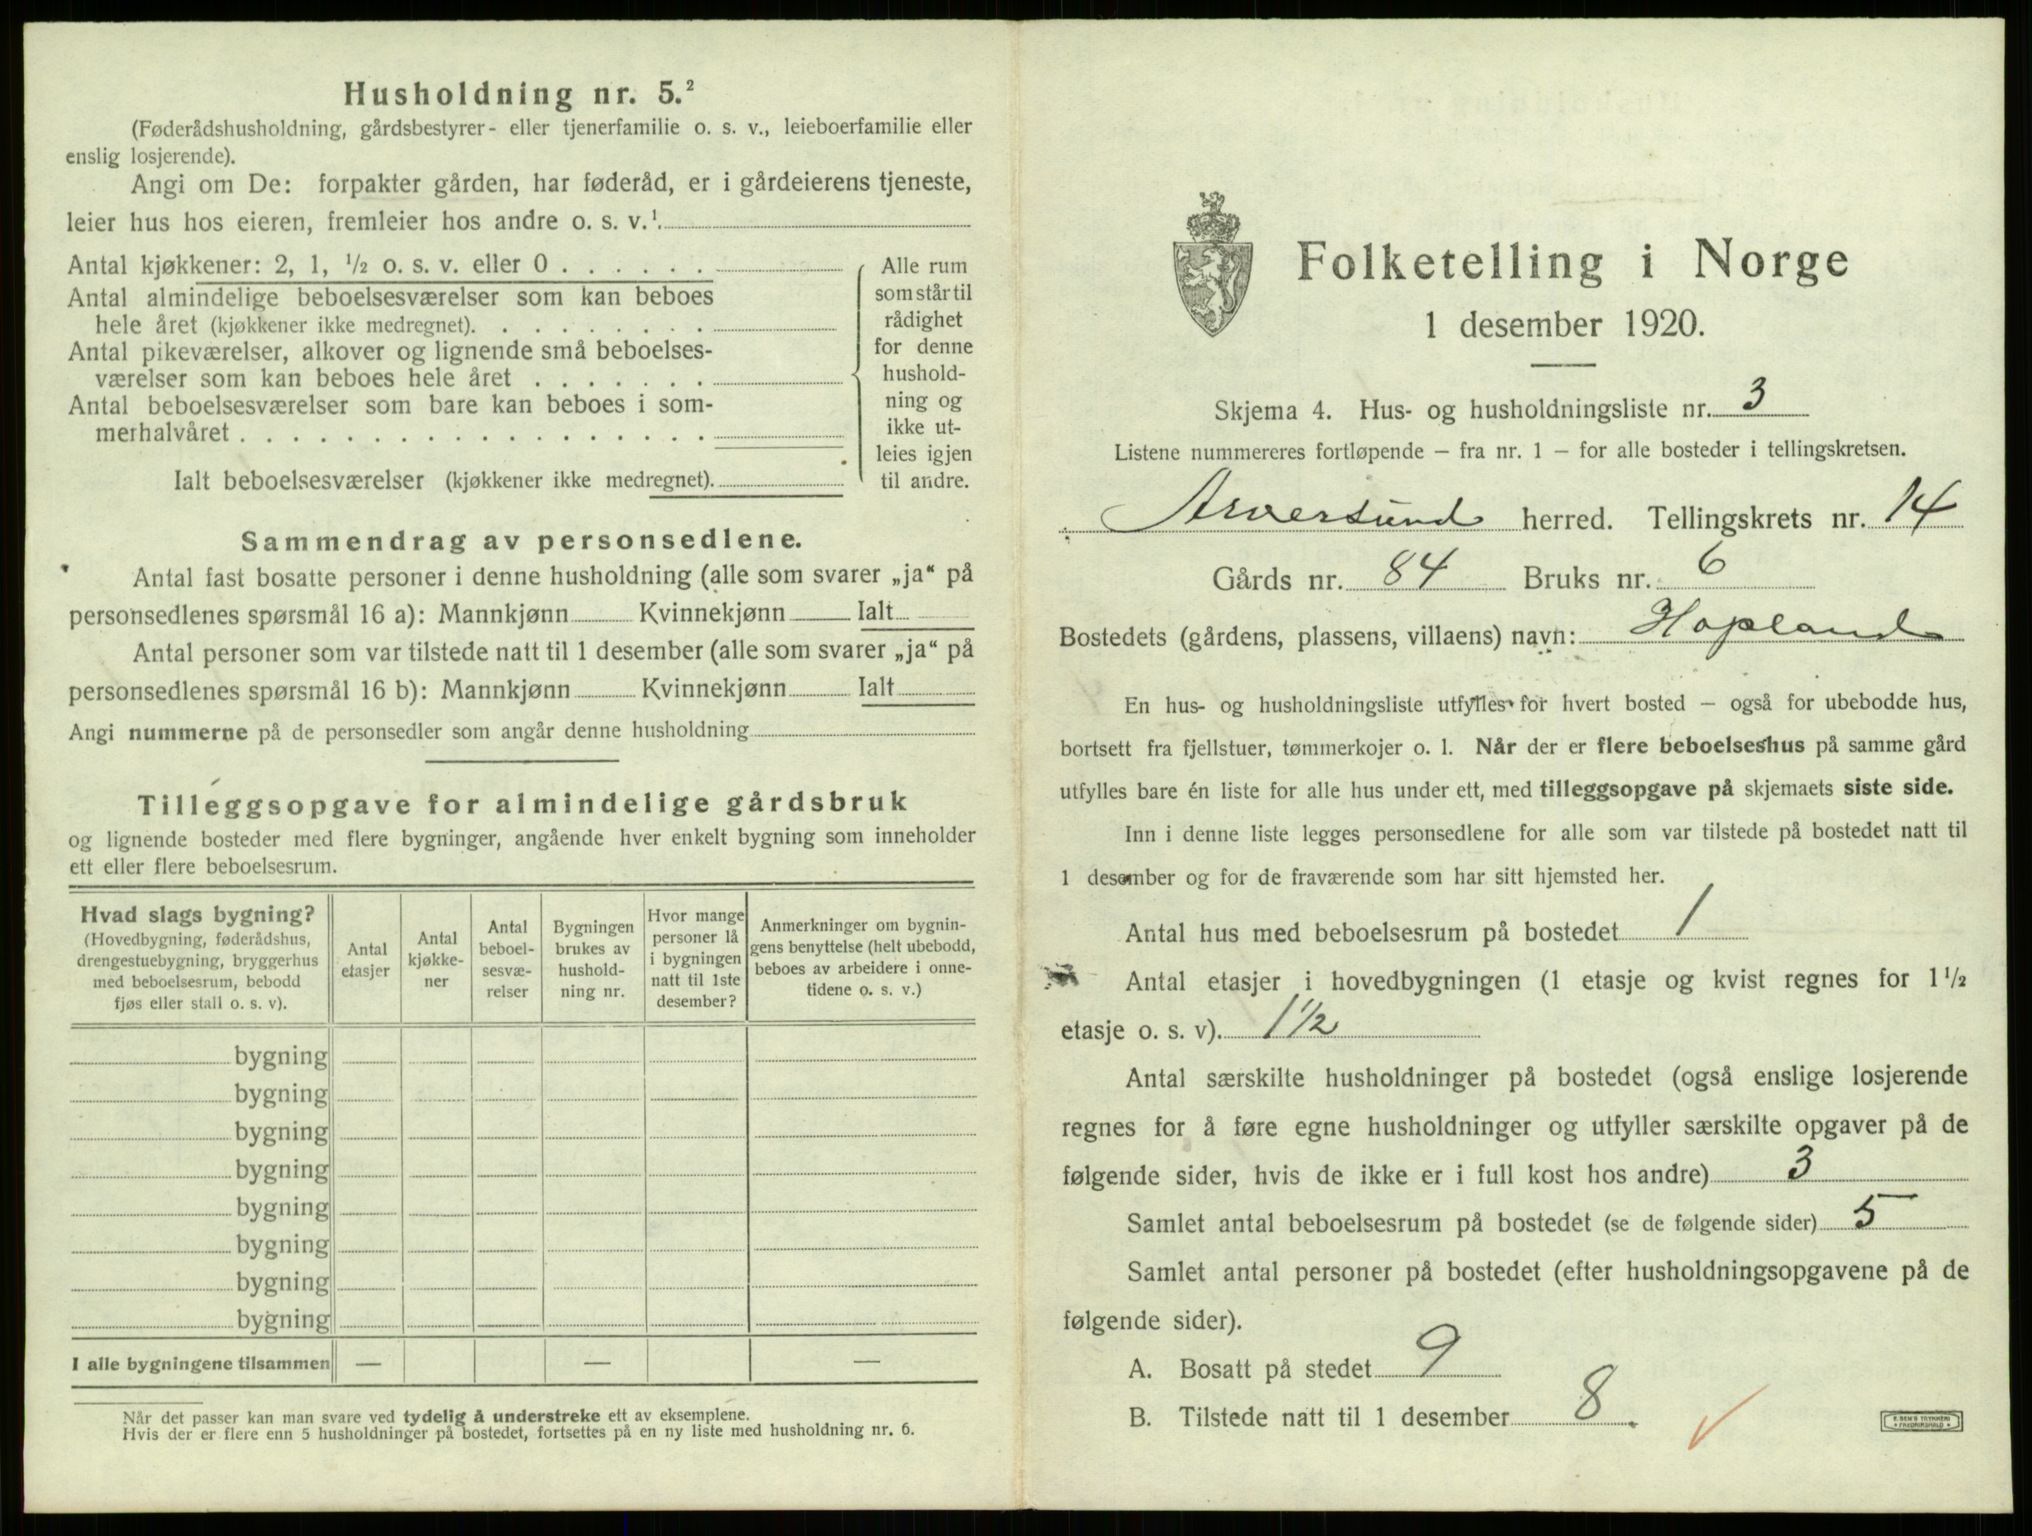 Husholdning nr. 5.²
(Føderådshusholdning, gårdsbestyrer- eller tjenerfamilie o. s. v., leieboerfamilie eller
enslig losjerende).
Angi om De: forpakter gården, har føderåd, er i gårdeierens tjeneste,
leier hus hos eieren, fremleier hos andre o. s. v.¹.
Antal kjøkkener: 2, 1, ½ o. s. v. eller 0 . . . . . .
Antal almindelige beboelsesværelser som kan beboes
hele året (kjøkkener ikke medregnet). . . . . . . . .
Antal pikeværelser, alkover og lignende små beboelses-
værelser som kan beboes hele året . . . . . . .
Antal beboelsesværelser som bare kan beboes i som-
merhalvåret . . . . . . . . . . . . . . . . . .
Ialt beboelsesværelser (kjøkkener ikke medregnet).
Alle rum
som står til
rådighet
for denne
hushold-
ning og
ikke ut-
leies igjen
til andre.
Sammendrag av personsedlene.
Antal fast bosatte personer i denne husholdning (alle som svarer „ja“ på
personsedlenes spørsmål 16 a): Mannkjønn Kvinnekjønn Ialt
Antal personer som var tilstede natt til 1 desember (alle som svarer „ja“ på
personsedlenes spørsmål 16 b): Mannkjønn Kvinnekjønn Ialt
Angi nummerne på de personsedler som angår denne husholdning
Tilleggsopgave for almindelige gårdsbruk
og lignende bosteder med flere bygninger, angående hver enkelt bygning som inneholder
ett eller flere beboelsesrum.
Hvad slags bygning?
(Hovedbygning, føderådshus,
drengestuebygning, bryggerhus
med beboelsesrum, bebodd
fjøs eller stall o. s. v).
Antal
etasjer
Antal
kjøkke-
ner
Antal
beboel-
sesvæ-
relser
Bygningen
brukes av
hushold-
ning nr.
Hvor mange
personer lå
i bygningen
natt til 1ste
desember?
Anmerkninger om bygnin-
gens benyttelse (helt ubebodd,
beboes av arbeidere i onne-
tidene o. s. v.)
bygning
bygning
bygning
bygning
bygning
bygning
bygning
bygning
I alle bygningene tilsammen — — —
Når det passer kan man svare ved tydelig å understreke ett av eksemplene.
Hvis der er flere enn 5 husholdninger på bostedet, fortsettes på en ny liste med husholdning nr. 6.
Folketelling i Norge
1 desember 1920.
Skjema 4. Hus- og husholdningsliste nr. 3
Listene nummereres fortløpende — fra nr. 1 — for alle bosteder i tellingskretsen.
Alversund herred. Tellingskrets nr. 14
Gårds nr. 84 Bruks nr. 6
Bostedets (gårdens, plassens, villaens) navn: Hopland
En hus- og husholdningsliste utfylles for hvert bosted — også for ubebodde hus,
bortsett fra fjellstuer, tømmerkojer o. l. Når der er flere beboelseshus på samme gård
utfylles bare én liste for alle hus under ett, med tilleggsopgave på skjemaets siste side.
Inn i denne liste legges personsedlene for alle som var tilstede på bostedet natt til
1 desember og for de fraværende som har sitt hjemsted her.
Antal hus med beboelsesrum på bostedet 1
Antal etasjer i hovedbygningen (1 etasje og kvist regnes for 1½
etasje o. s. v). 1½
Antal særskilte husholdninger på bostedet (også enslige losjerende
regnes for å føre egne husholdninger og utfyller særskilte opgaver på de
følgende sider, hvis de ikke er i full kost hos andre) 3
Samlet antal beboelsesrum på bostedet (se de følgende sider) 5
Samlet antal personer på bostedet (efter husholdningsopgavene på de
følgende sider).
A. Bosatt på stedet 9
B. Tilstede natt til 1 desember 8